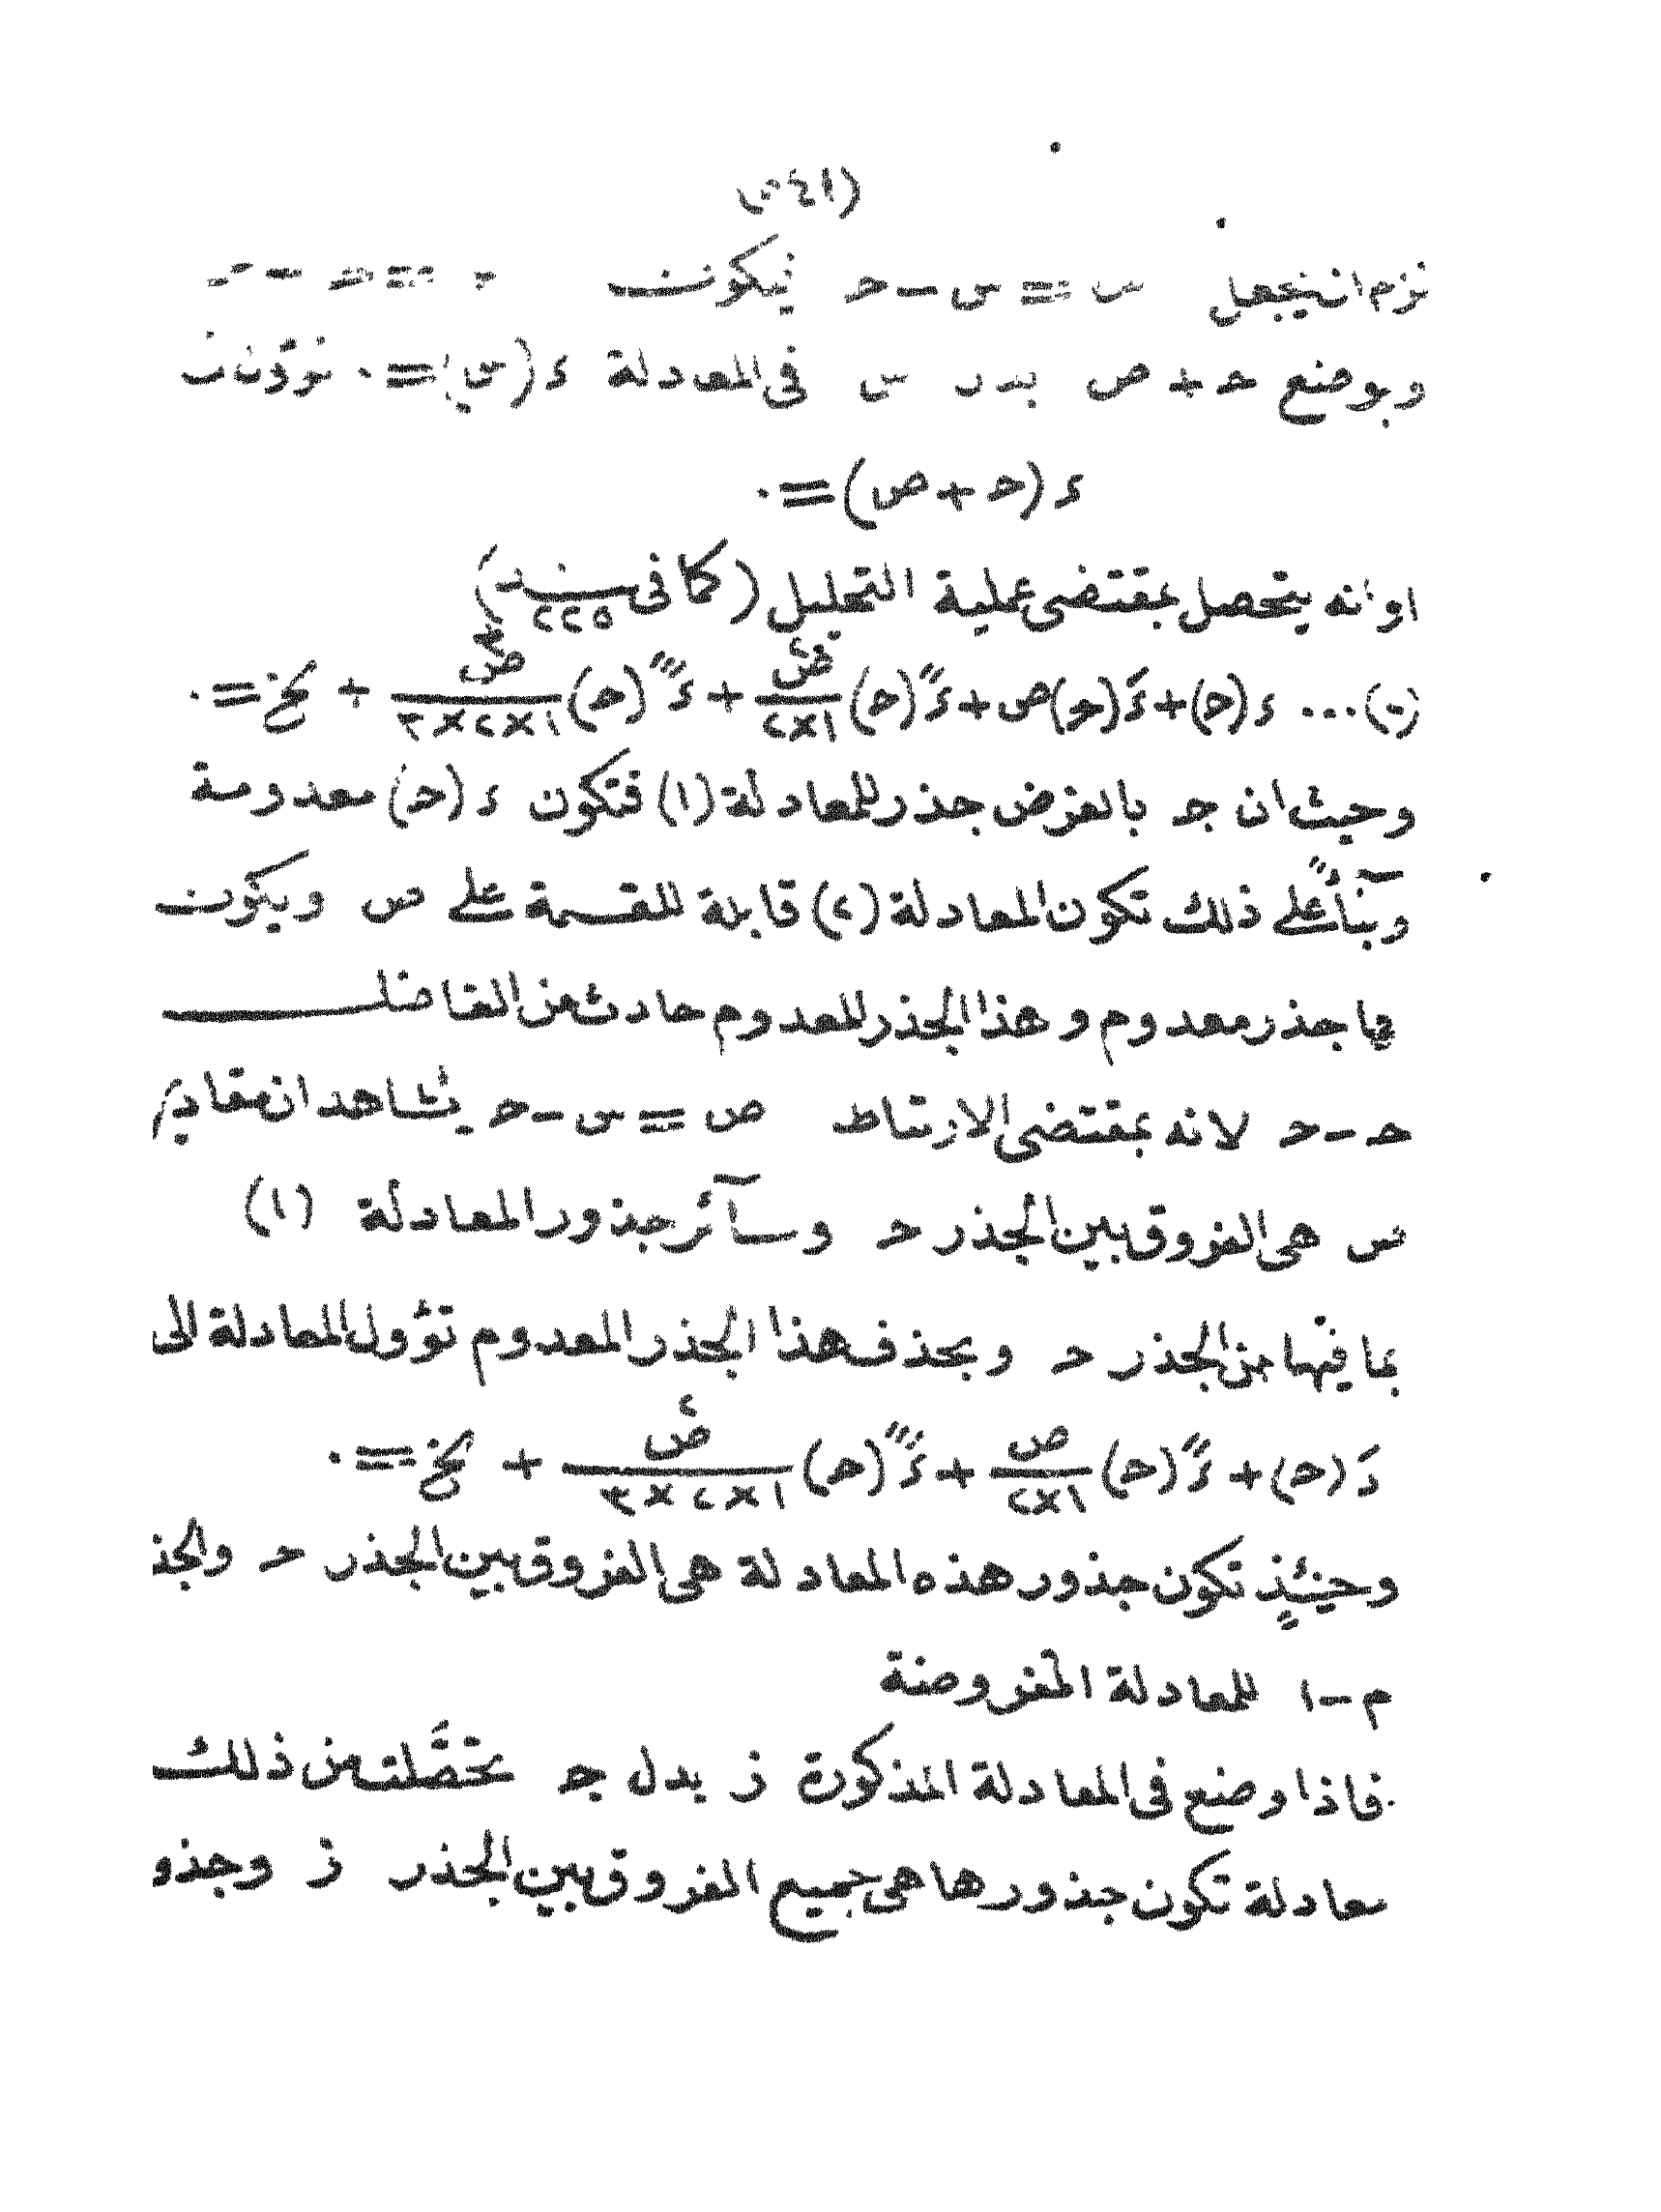 لزم ان نجعل س = س − حـ فيكون
وبوضع حـ + ص بدل س فى المعادلة د (س) = ٠ تؤول
د (حـ + ص) = ٠
او انه يتحصل بمقتضى عملية التحليل (كما فى بند ٢٢٥)
(٢) ... د (حـ) + دَ (حـ) ص + دً (حـ) ص٢/١×٢ + د‴ (حـ) ص٣/١×٢×٣ + الخ = ٠
وحيث ان حـ بالفرض جذر للمعادلة (١) فتكون د (حـ) معدومة
وبنآءً على ذلك تكون المعادلة (٢) قابلة للقسمة على ص ويكون
فيها جذر معدوم وهذا الجذر المعدوم حادث من الفاضل
حـ − حـ لانه بمقتضى الارتباط ص = س − حـ يشاهد ان مقادير
ص هى الفروق بين الجذر حـ وسآئر جذور المعادلة (١)
بما فيها من الجذر حـ وبحذف هذا الجذر المعدوم تؤول المعادلة الى
دَ (حـ) + دً (حـ) ص/١×٢ + د‴ (حـ) ص٢/١×٢×٣ + الخ = ٠
وحينئذٍ تكون جذور هذه المعادلة هى الفروق بين الجذر حـ والجذ
م − ١ للمعادلة المفروضة
فاذا وضع فى المعادلة المذكورة ز بدل حـ تحصَّلت من ذلك
معادلة تكون جذورها هى جميع الفروق بين الجذر ز وجذو